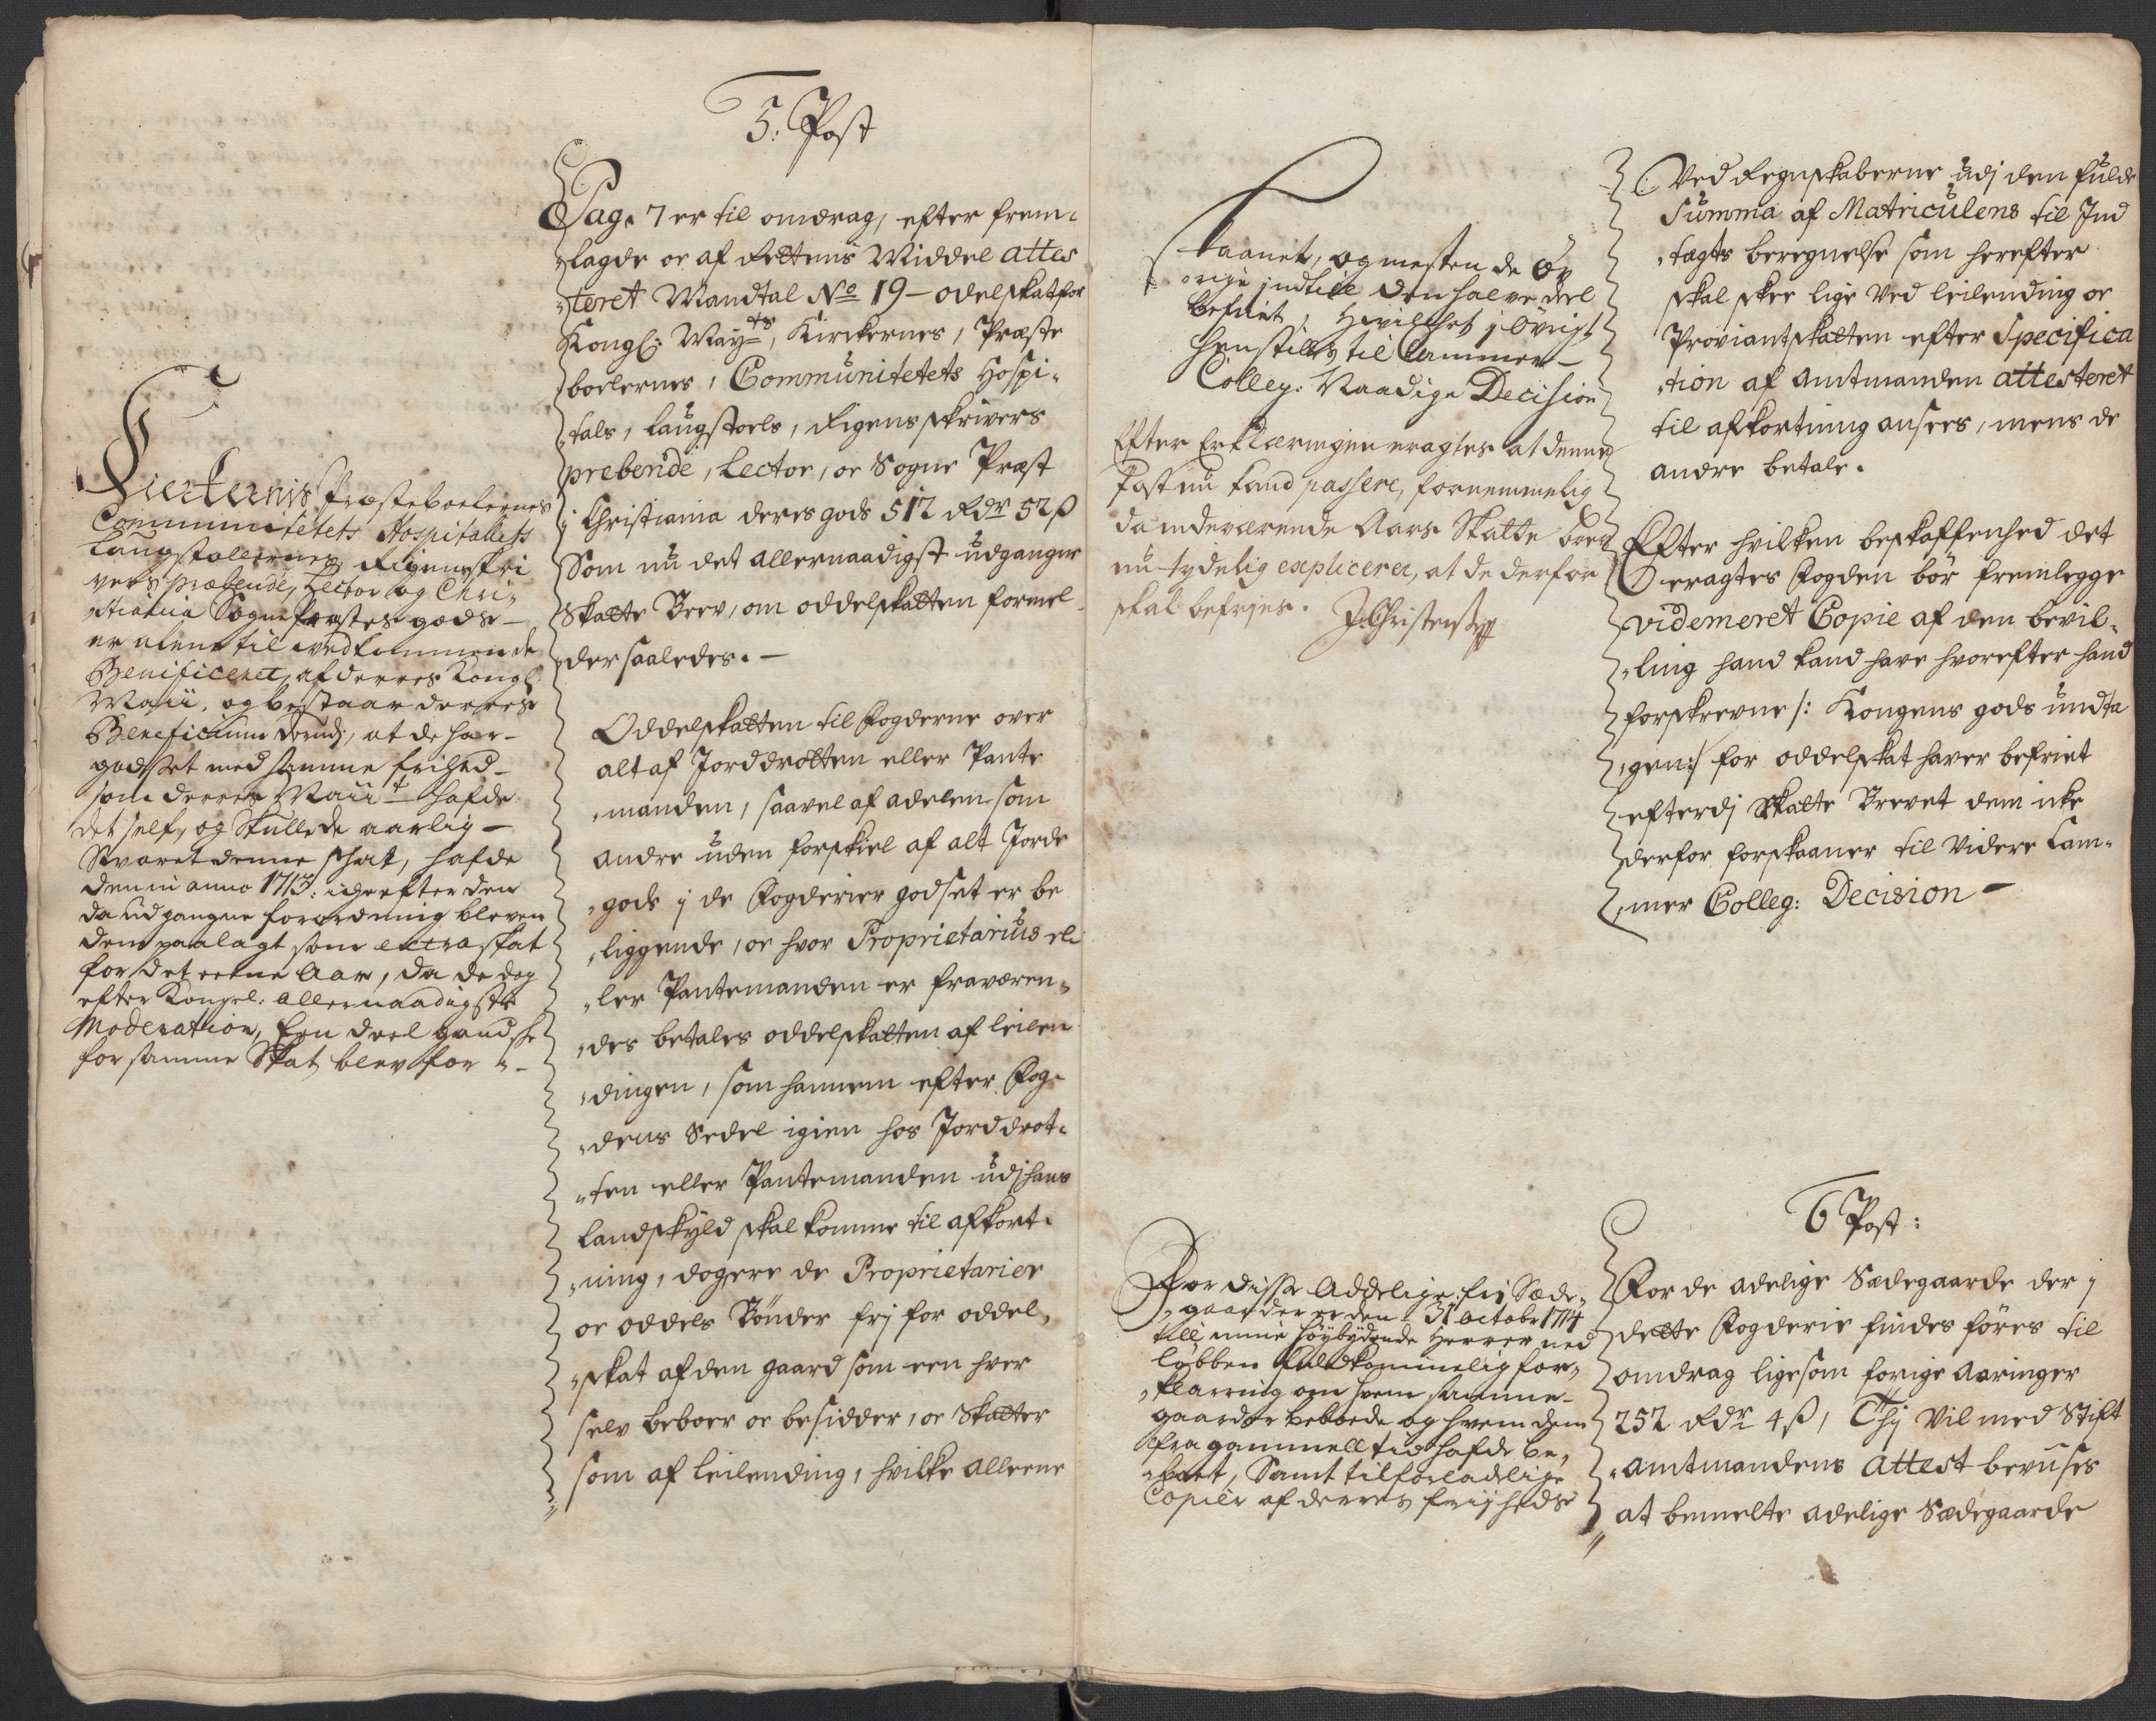 5: Post
Pag. 7 er til omdrag, efter frem-
lagde oc af Rettens Middel attes
teret Mandtal No 19 - odelskat for
Kongl: Mayts, Kirckernes, Præste
boelernes, Communitetets Hospi-
tals, Laugstoels, Rigens skrivers
prebende, Lector, oc Sogne Præst
j Christiania deres gods 512 Rdr 52 ß
Som nu det allernaadigst udgangne
Skatte Brev, om oddelskatten formel-
der saaledes. -
Oddelskatten til Fogderne over
alt af Jorddrotten eller Pante
manden, saavel af adelen som
andre uden forskiel af alt Jorde
gods j de Fogderier godset er be
liggende, oc hvor Proprietarius el-
ler Pantemanden er fraværen-
des betales oddelskatten af leilen
dingen, som hannem efter Fog-
dens Sedel igien hos Jorddrot-
ten eller Pantemanden udj hans
Landskyld skal komme til afkort-
ning, dog ere de Proprietarier
oc oddels Bønder frj for oddel-
skat af den gaard som een hver
selv beboer oc besidder, oc Skatter
som af leilending, hvilke alleene
Kierkernis Præsteboelernes
Communitetets Hospitalets
Laugstolernes Rigenskri
vers præbende, Lector og Chri-
stiania Sognepræstes gods -
er alene til vedkommende
Benificeret, af deres Kongl
Maii. og bestaar derres
Beneficium derudj, at de har-
godset med samme frihed -
som derres Maiit hafde
det self, og skulle de aarlig -
Svaret denne schat, hafde
den in anno 1713: efter den
da udgangne forordning bleven
dem paalagt som extra skat
for det eene Aar, da de dog
efter Kongel: allernaadigste
Moderation, Een deel gandsche
for samme Skat blev for -
skaanet, og mesten de Øv
rige indtill den halve deel
befriet, Hvilchet j Øvrigt
henstilles til Cammer -
Colleg: Naadige Decision
Efter Erklæringen eragtes at denne
Post nu kand passere, fornemmelig
da indeværende Aars Skatte brev
nu tydelig explicerer, at de derfor
skal befries. J Christensen
Ved Regnskaberne udj den fulde
Summa af Matriculens til Ind
tægts beregnelse som herefter
skal skee lige ved leilending oc
Proviantskatten efter Specifica
tion af Amtmanden attesteret
til afkortning ansees, mens de
andre betale.
Efter hvilken beskaffenhed det
eragtes Fogden bør fremlegge
videmeret Copie af den bevil-
ling hand kand have hvorefter hand
forskrevne /: Kongens gods undta
gen :/ for oddelskat haver befriet
efterdj Skatte Brevet dem icke
derfor forskaaner til videre Cam-
mer Colleg: Decision -
For disse Addelige frj Sæde-
gaarder er den 31 octobr 1714
till mine høybydende Herrer ned
løbben fuldkommelig for-
klarring om hvem samme -
gaarder beboede og hvem dem
fra gammell tid hafde be-
boet, Samt tilforladelige
Copier af derres frijheds
6 Post:
For de adelige Sædegaarde der j
dette Fogderie findes føres til
omdrag ligesom forige Aaringer
252 Rdr 4 ß, Thj vil med Stift
amtmandens Attest bevises
at bemelte adelige Sædegaarde